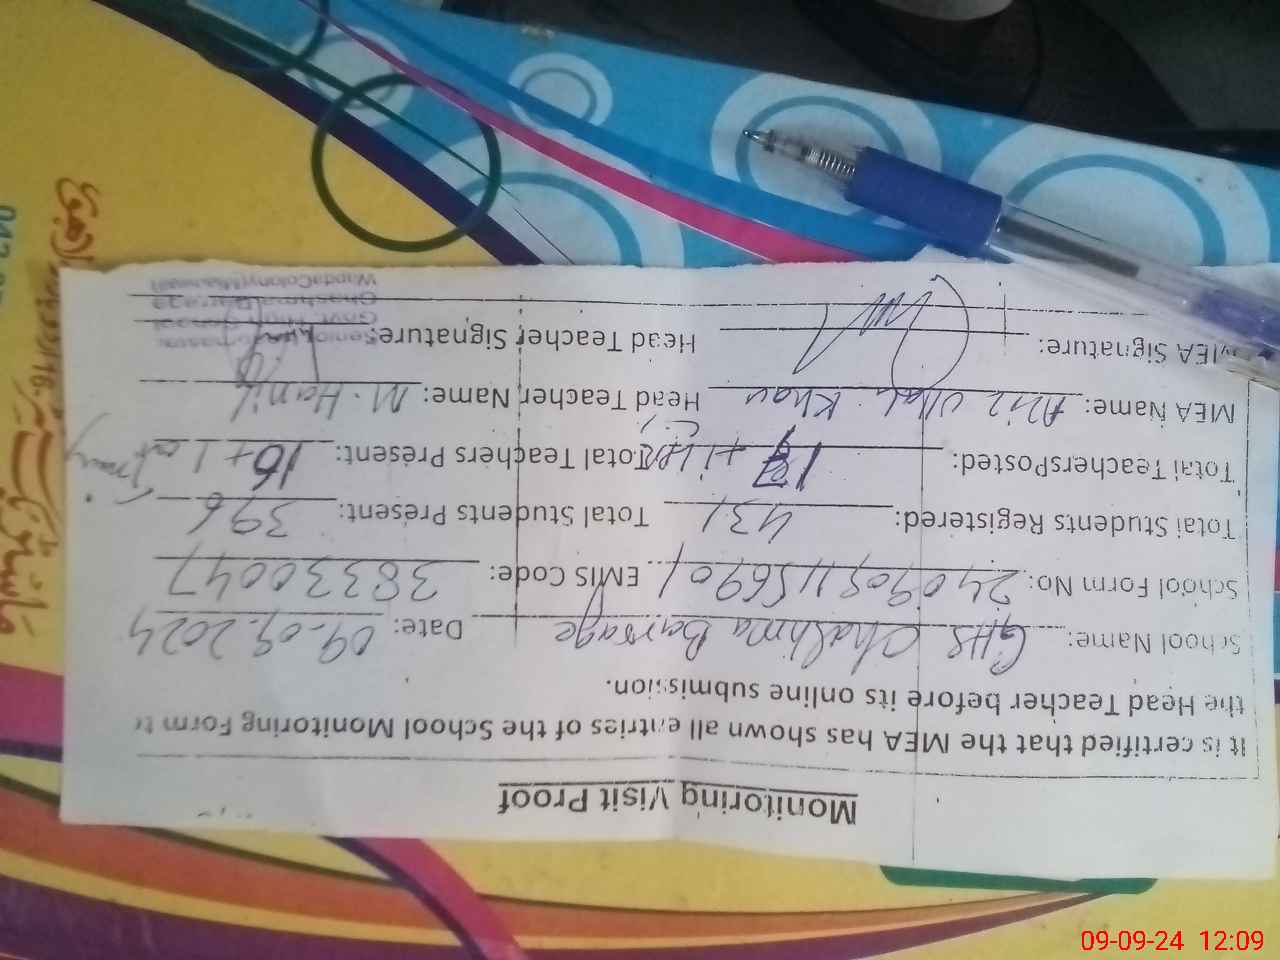 Monitoring Visit Proof
It is certified that the MEA has shown all entries of the School Monitoring Form to
the Head Teacher before its online submission.
School Name: GHS Chashma Barrage Date: 09.09.2024
School Form No: EMIS Code: 38330047
Total Students Registered: 431 Total Students Present: 396
Total TeachersPosted: Total Teachers Present: 16+1
MEA Name: Khan Head Teacher Name: M. Hanif
MEA Signature: Head Teacher Signature:
Chashma Barrage
09-09-24 12:09